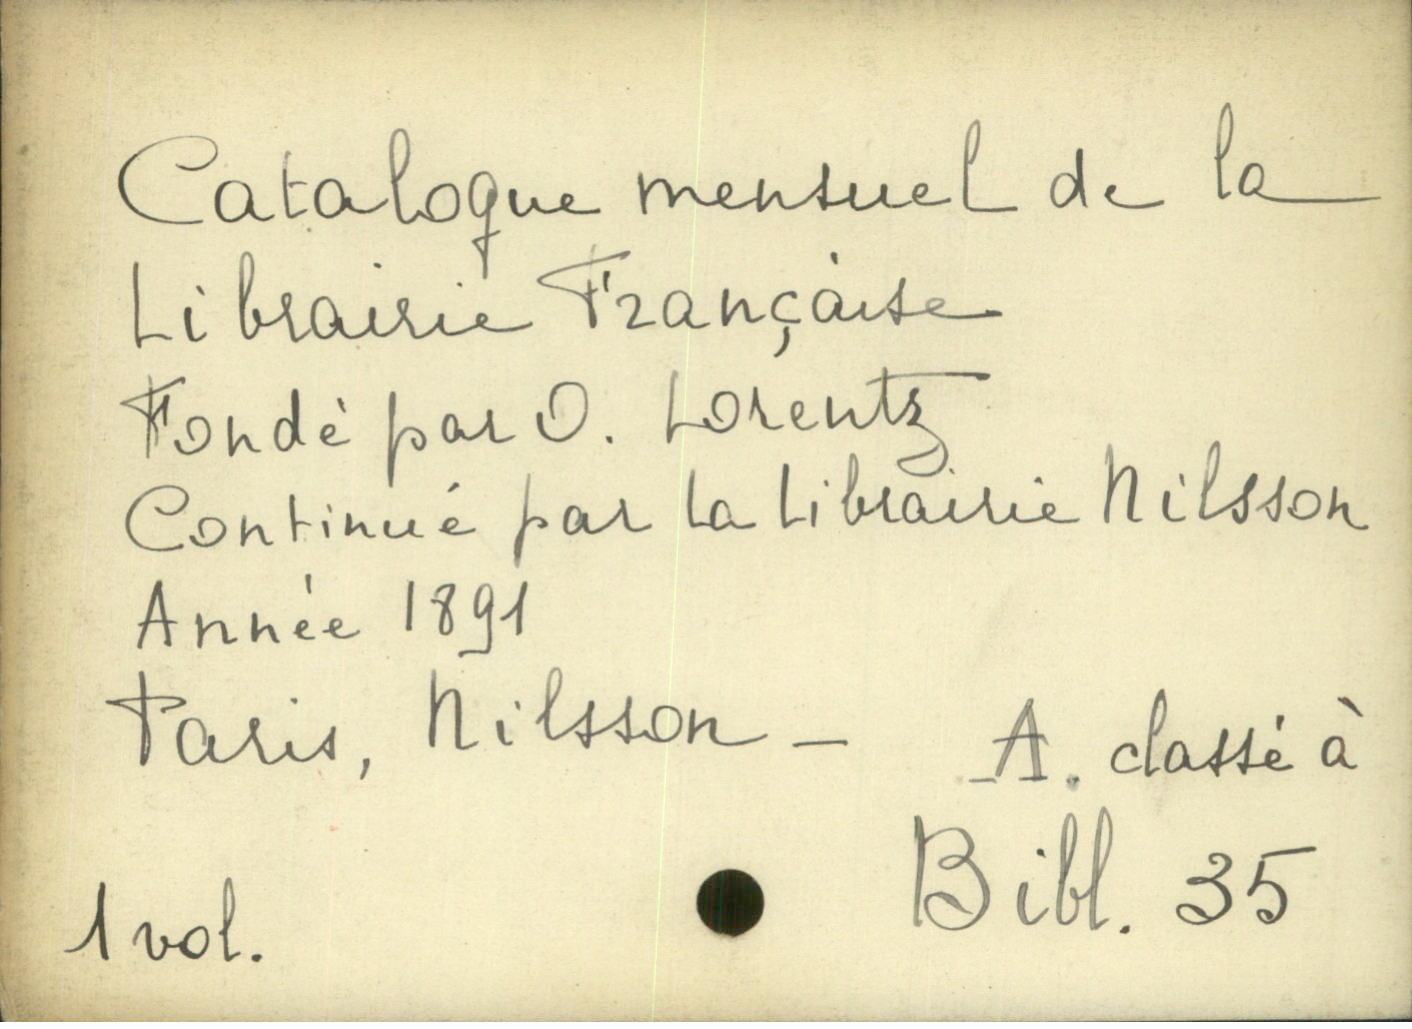 Catalogue mensuel de la
Librairie Française
Fondé par O. Lorentz
Continué par la Librairie Nilsson
Année 1891
Paris, Nilsson _
A. classé à
Bibl. 35
1 vol.